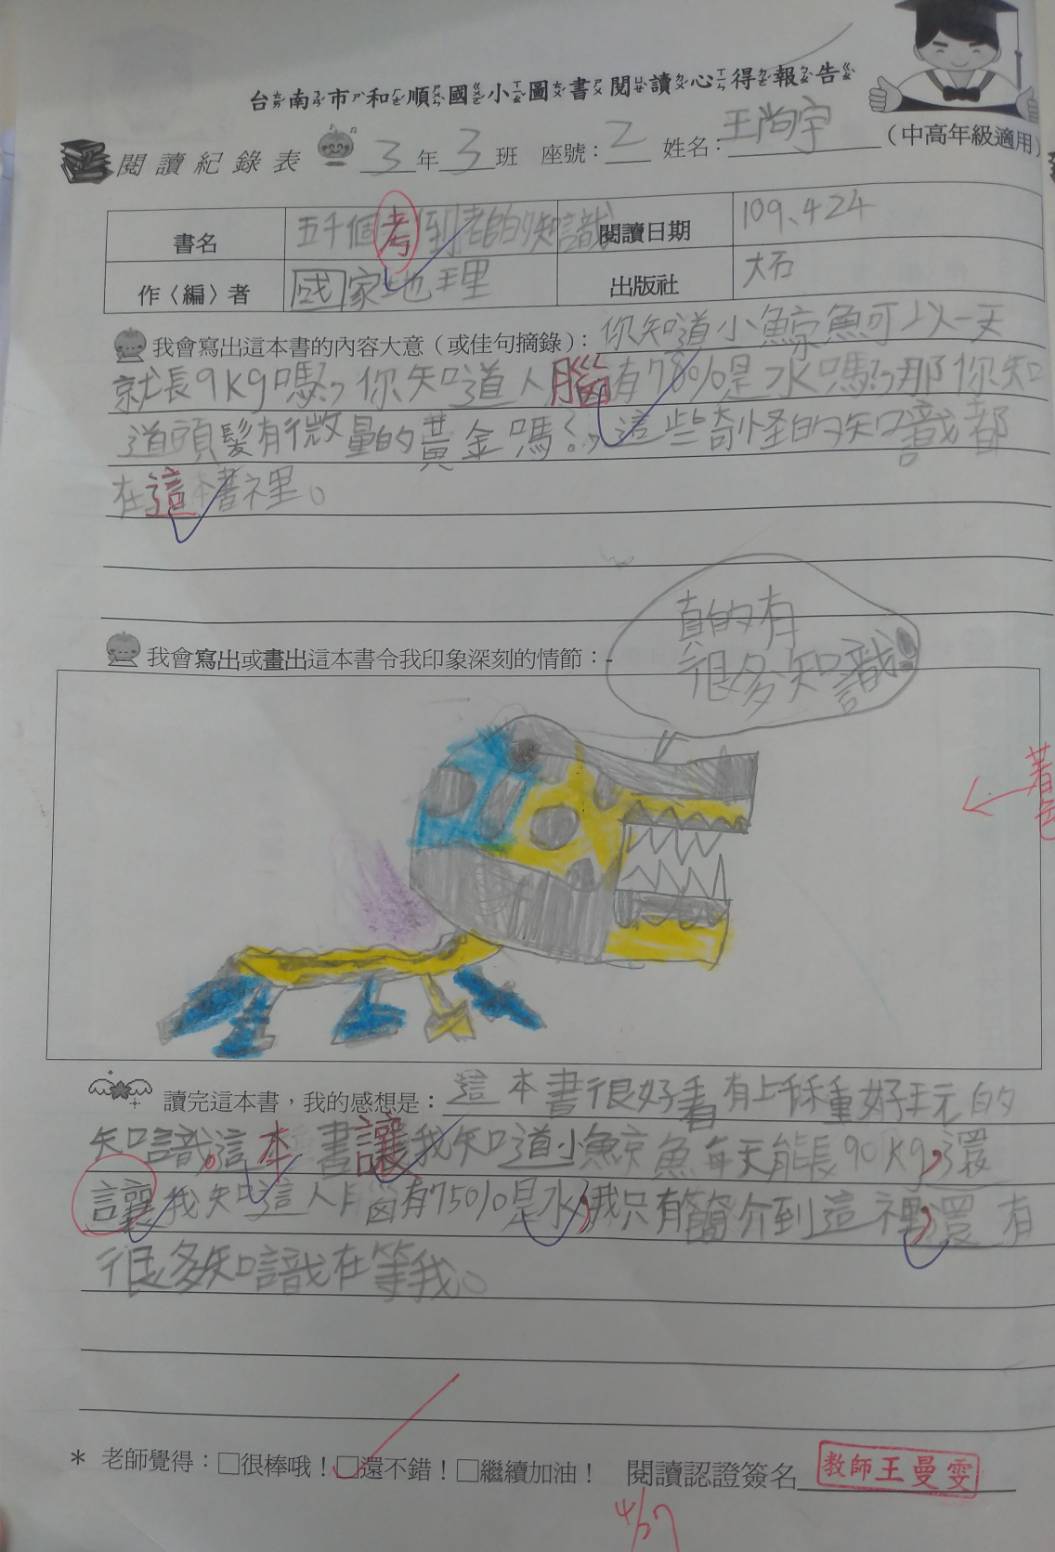 台南市和順國小圖書閱讀心得報告
閱讀紀錄表 3年3班 座號：2 姓名：王尚宇 （中高年級適用）
書名 五千個考到老的知識 閱讀日期 109、4.24
作〈編〉者 國家地理 出版社 大石
我會寫出這本書的內容大意（或佳句摘錄）：你知道小鯨魚可以一天
就長9Kg嗎？，你知道人腦有78%是水嗎？，那你知
道頭髮有微量的黃金嗎？，這些奇怪的知識都
在這本書裡。
真的有
很多知識！
我會寫出或畫出這本書令我印象深刻的情節：
著色
讀完這本書，我的感想是：這本書很好看有上千種好玩的
知識。這本書讓我知道小鯨魚每天能長90Kg，還
讓我知道人腦有75%是水，我只有簡介到這裡，還有
很多知識在等我。
＊ 老師覺得：□很棒哦！□還不錯！□繼續加油！ 閱讀認證簽名 教師王曼雯
4/27